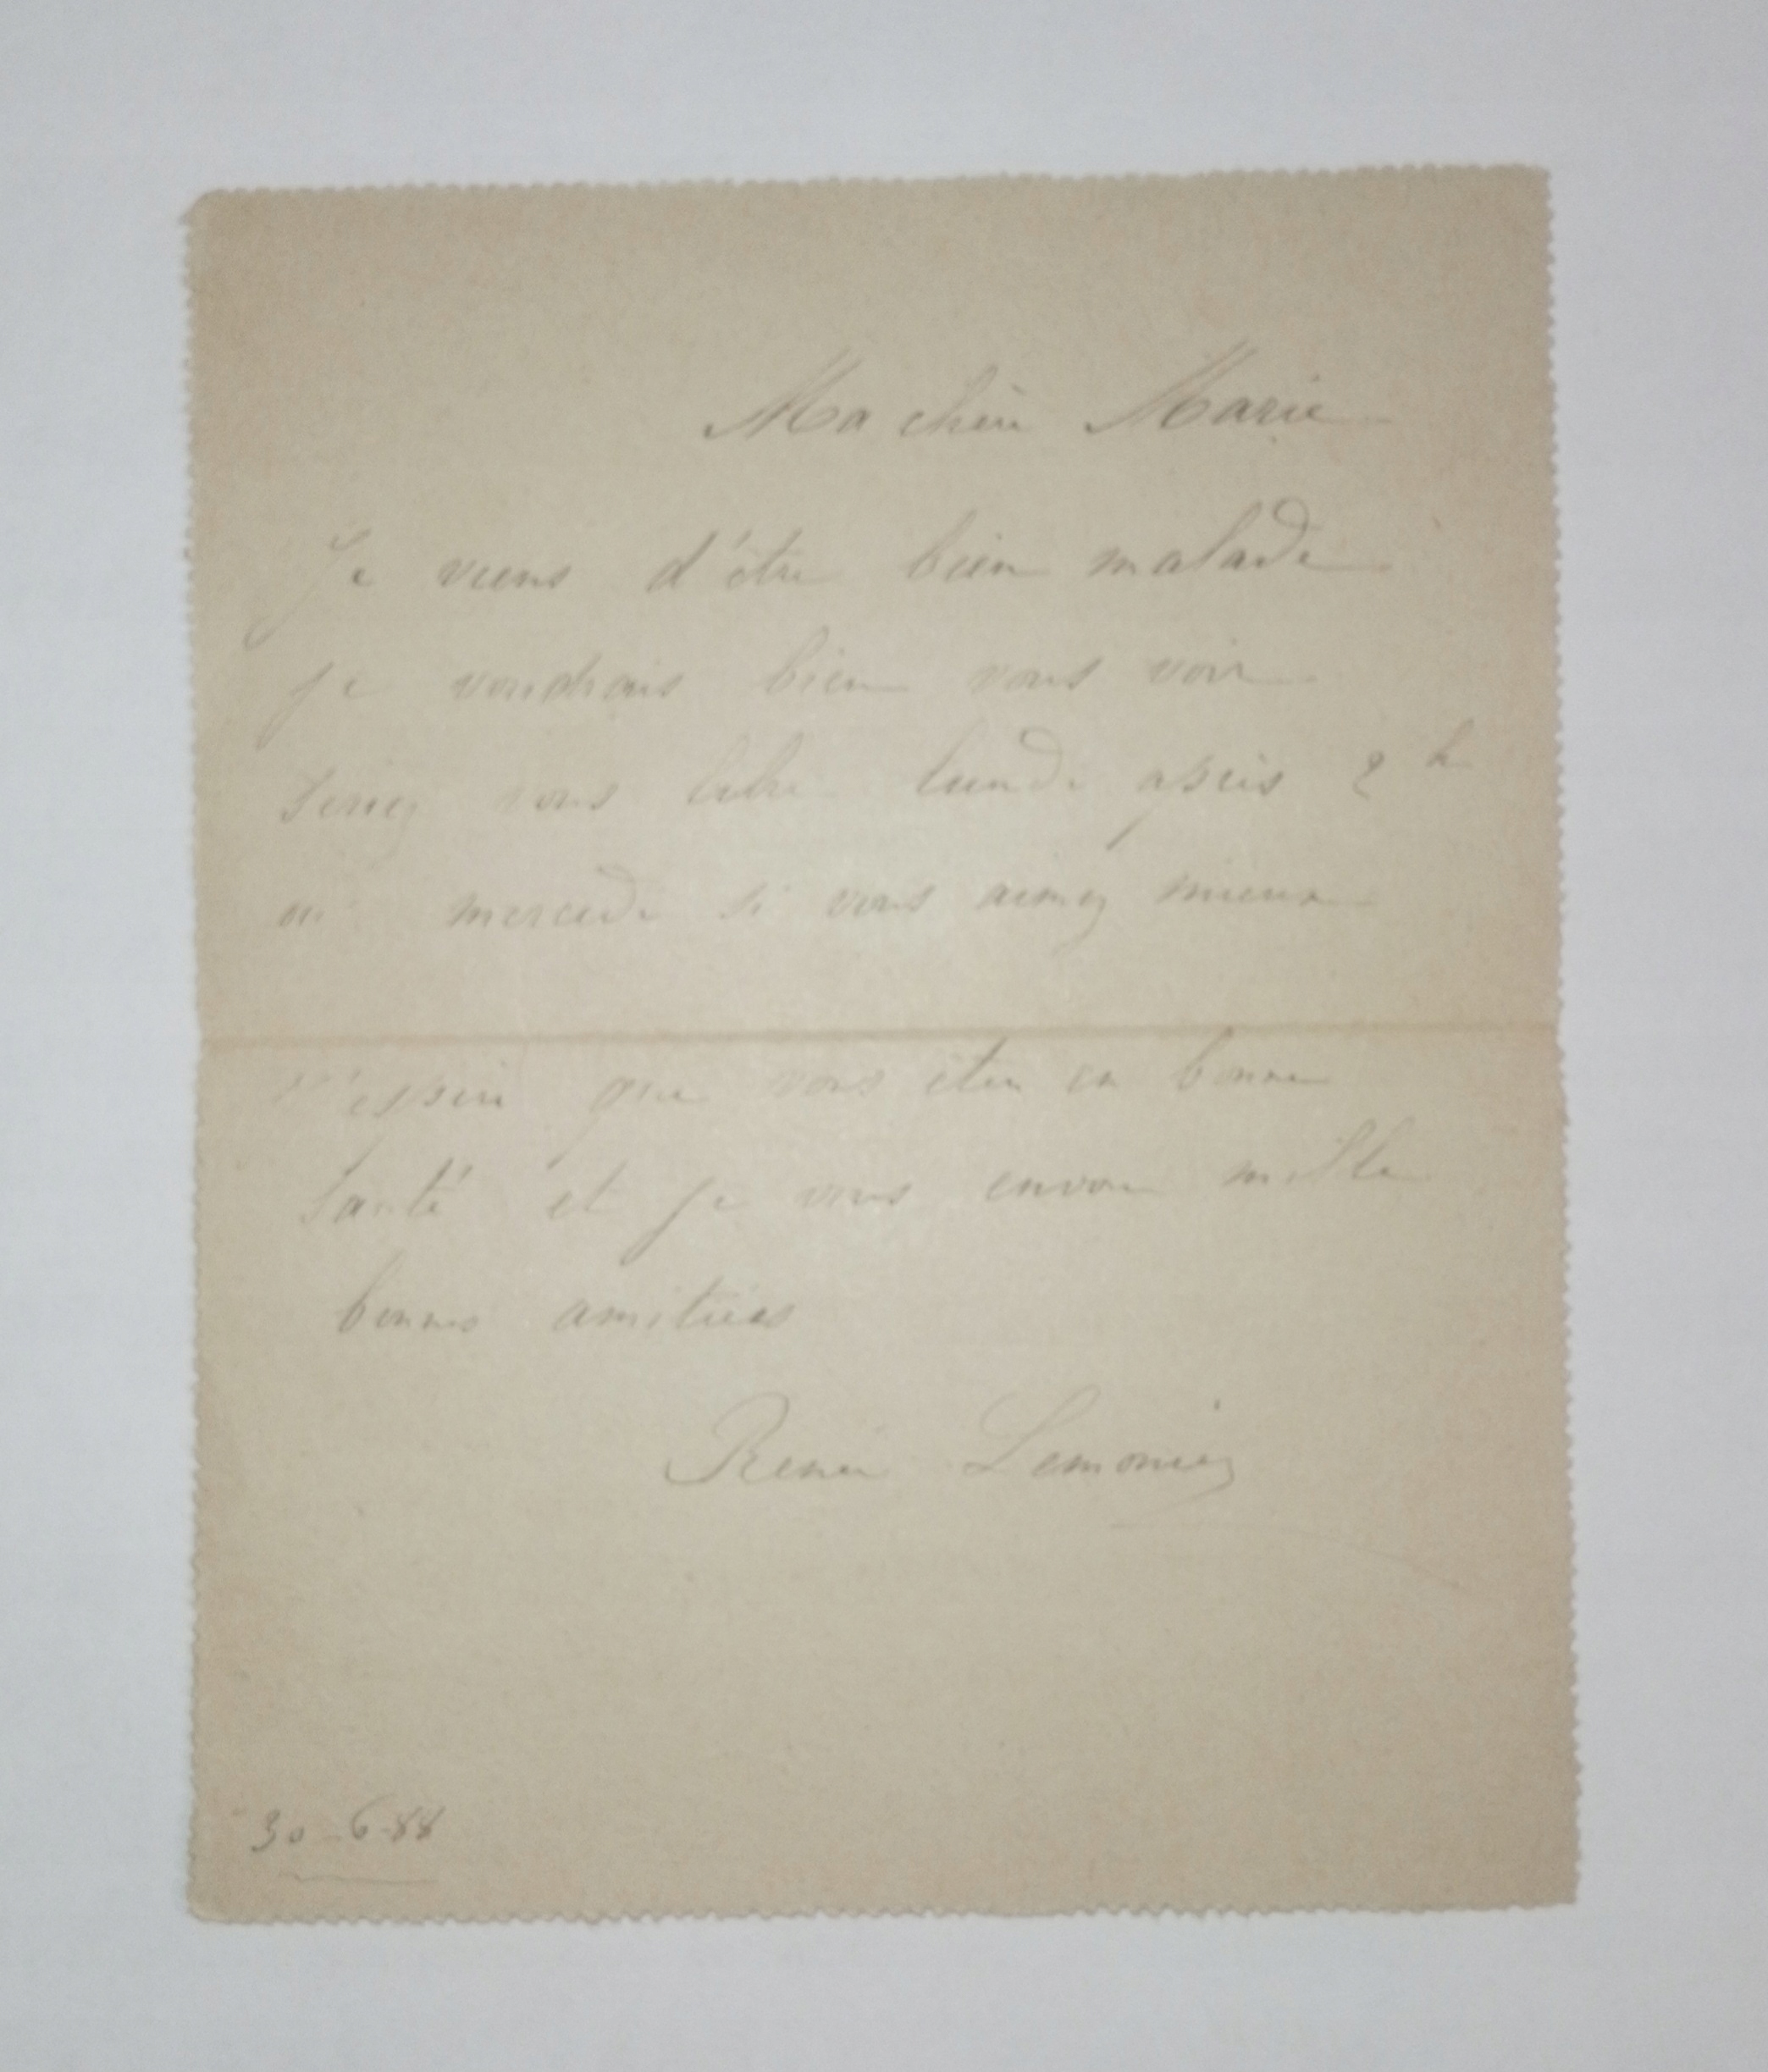 Ma chère Marie
Je viens d'être bien malade
je voudrais bien vous voir
serez vous libre lundi après 2 h
ou mercredi si vous aimez mieux
J'espère que vous êtes en bonne
santé et je vous envoie mille
bonnes amitiées
Lemonier
30-6-88